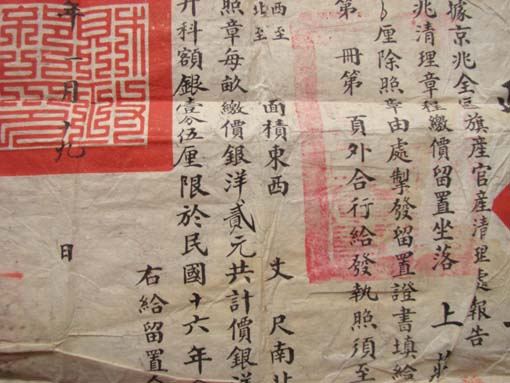 據京兆全區旗產官產清理處報告
兆清理章程繳價留置坐落 上莊
厘除照章由處掣發留置證書填給
第 冊第 頁外合行給發執照須至
西至 面積東西 丈 尺南北
北至
照章每畝繳價銀洋貳元共計價銀洋
升科額銀 伍厘限於民國十六年
右給留置
年一月十九日